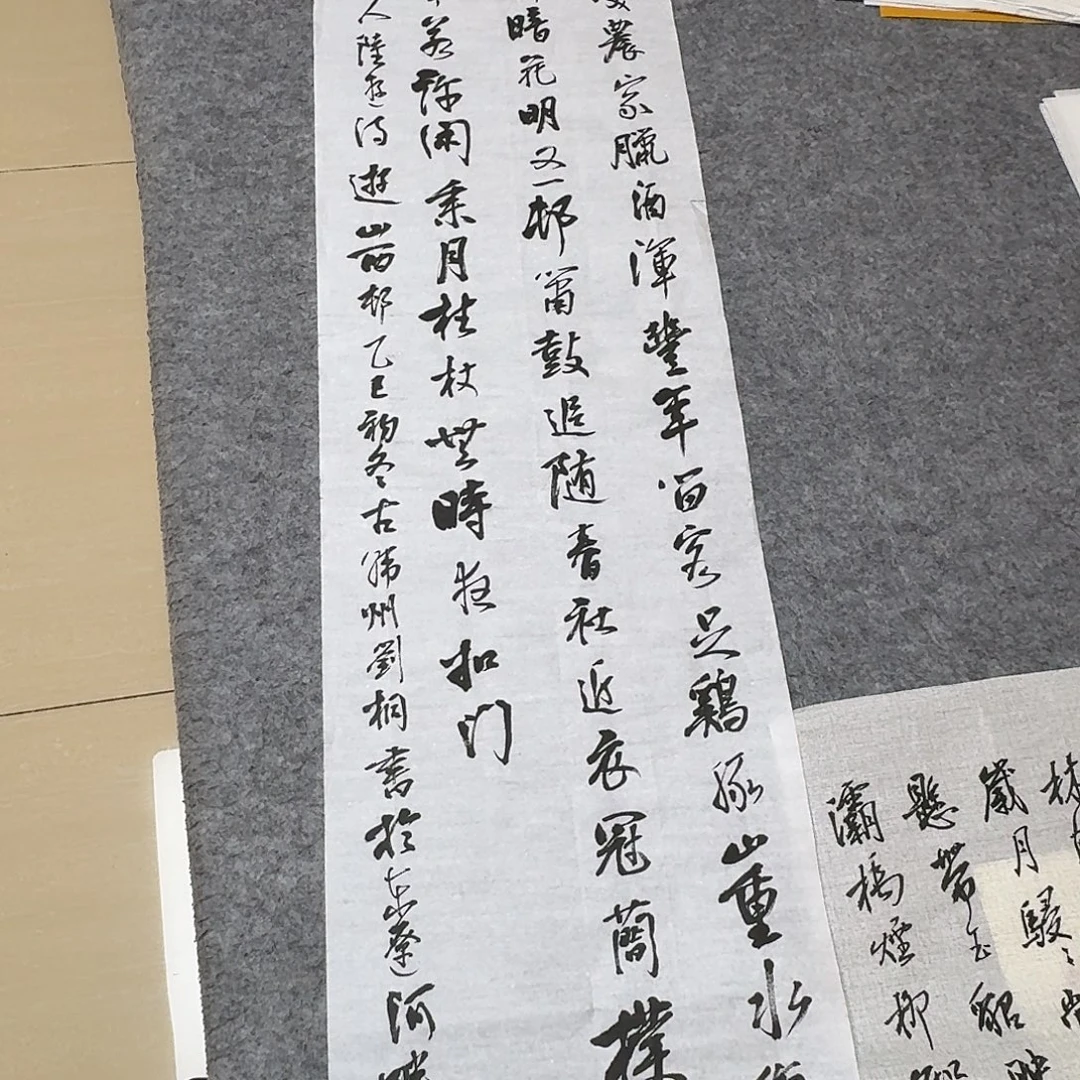 歲月駸々尚
懸帶玉貂映
灞橋煙柳
農家臘酒渾豐年留客足鷄豚山重水
暗花明又一邨簫鼓追随春社近衣冠簡樸
若許閑乘月拄杖無時夜扣门
人陸遊詩遊山西邨乙巳初冬古韓州劉桐書於东遼河畔